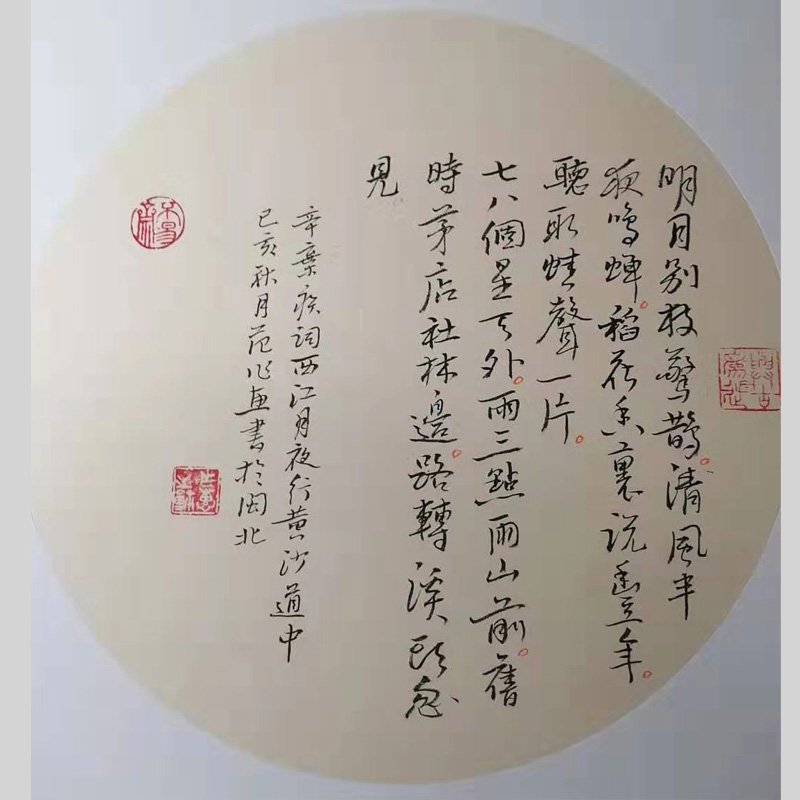 明月别枝驚鵲。清風半
夜鳴蟬。稻花香裏説豐年。
聽取蛙聲一片。
七八個星天外。兩三點雨山前。舊
時茅店社林邊。路轉溪頭忽
見
辛棄疾詞西江月夜行黄沙道中
己亥秋月范書於閩北